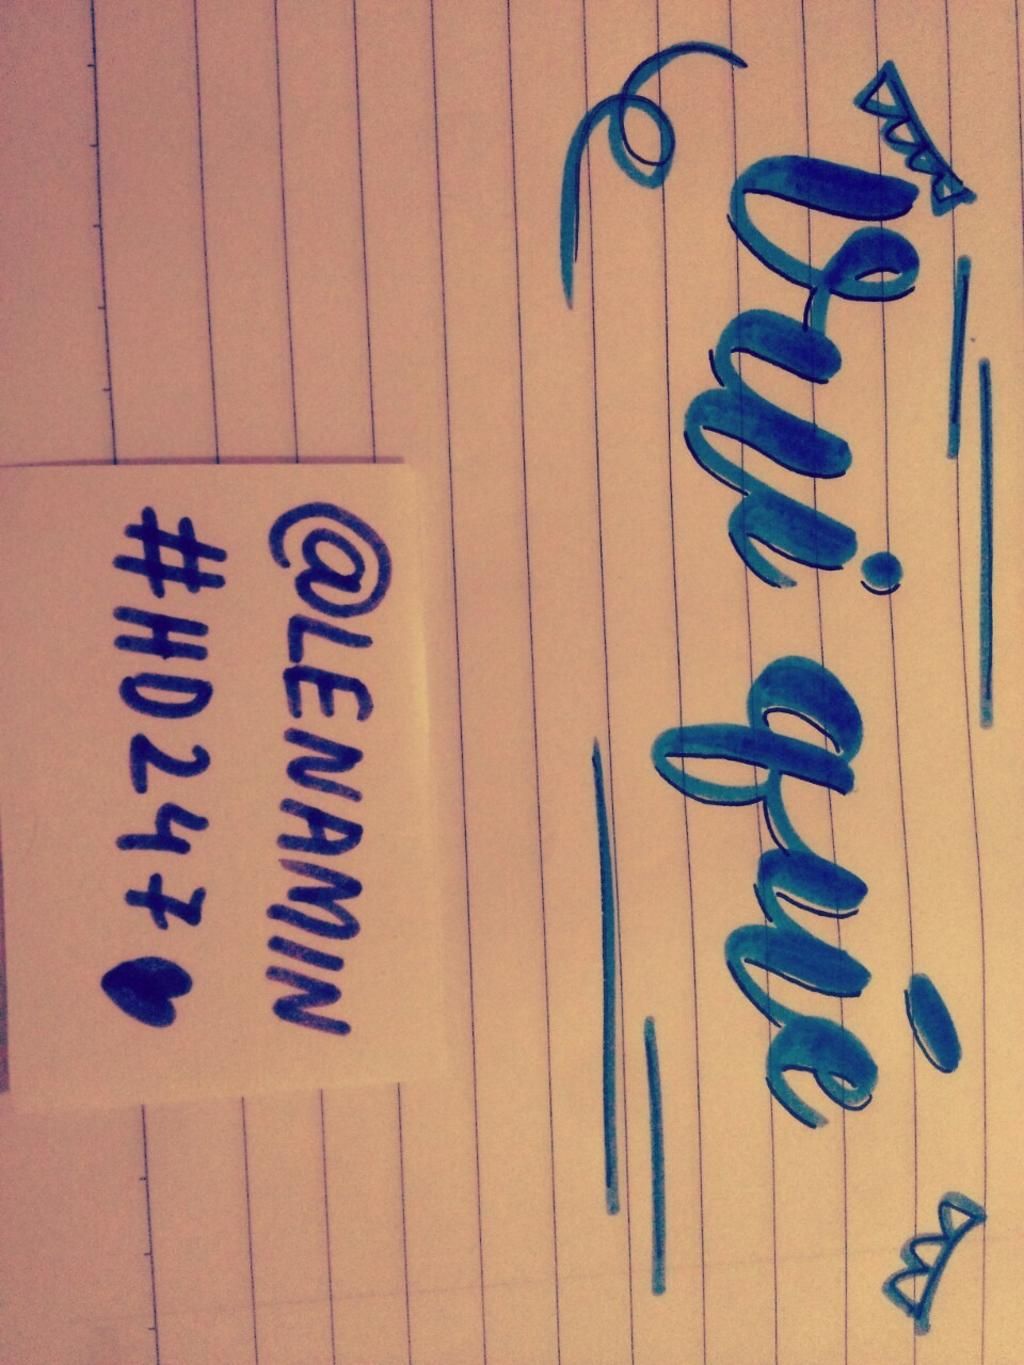 Vai qué
@LENAMIN
#HD247